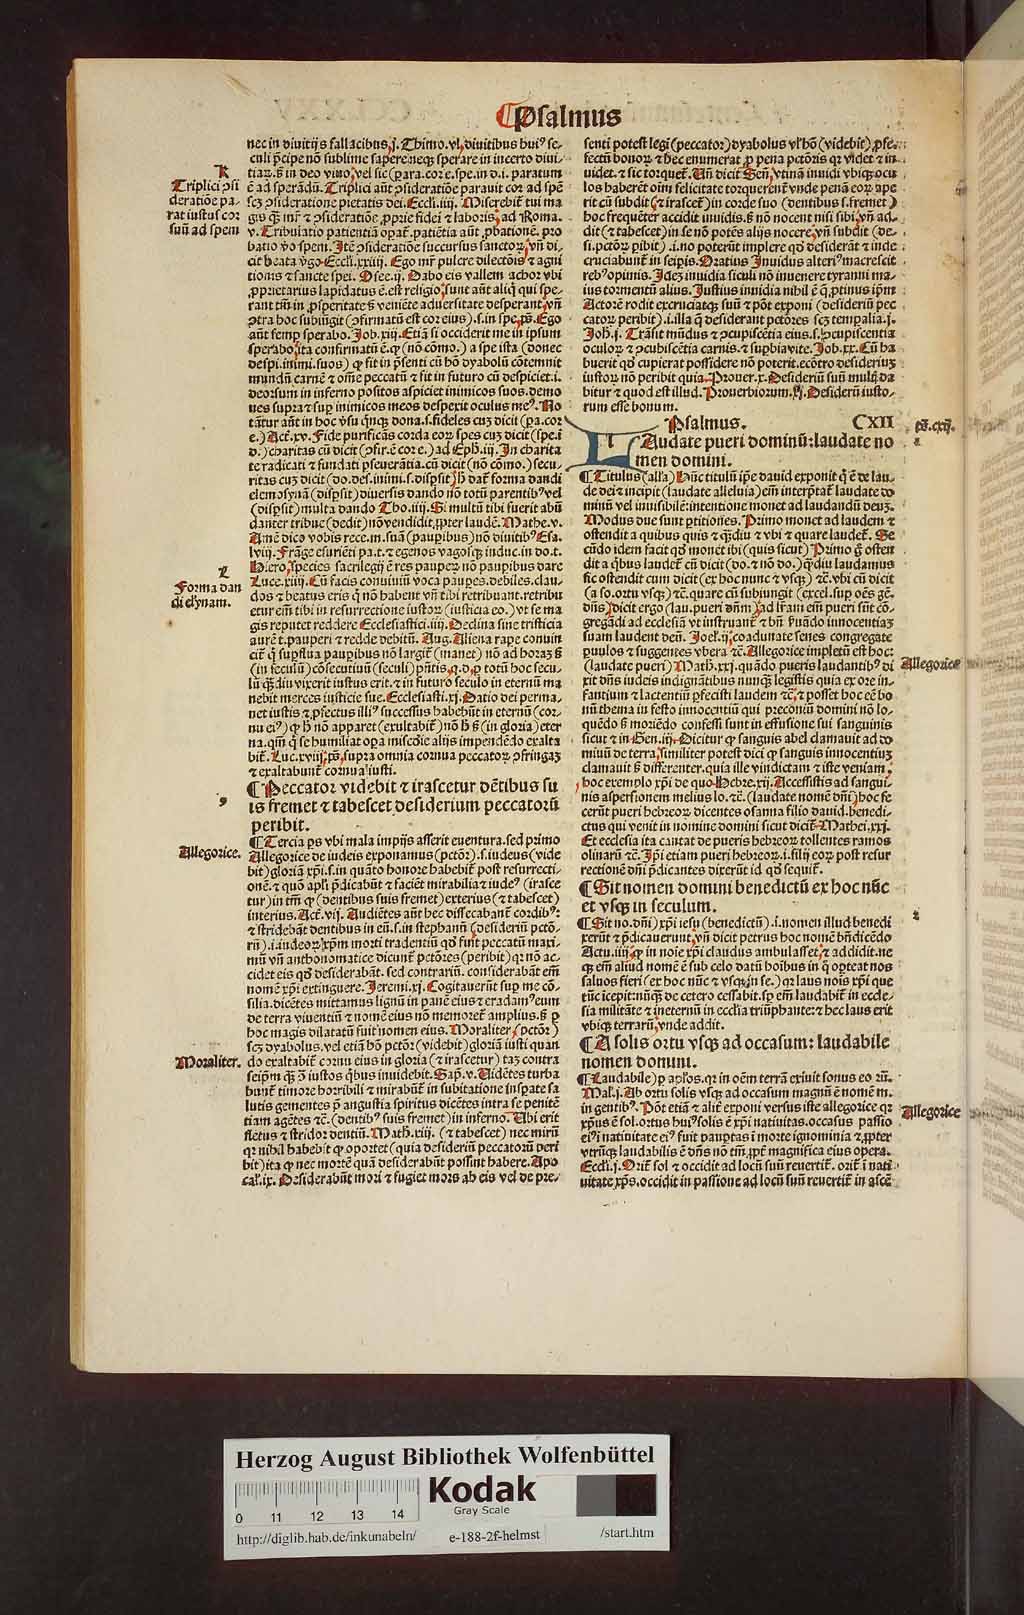 Psalmus
nec in diuitijs fallacibus. j. Thimo. vl. diuitibus huiꝰ se-
culi p̄cipe nō sublime sapere neqꝫ sperare in incerto diui-
tiaꝝ. s̄ in deo viuo, vel sic (para. cor e. spe. in d. i. paratum
ē ad sperādū. Triplici aūt ꝯsideratiōe parauit cor ad spē
scꝫ ꝯsideratione pietatis dei. Eccli. iiij. Miserebit̄ tui ma
gis qꝫ mr̄ ⁊ ꝯsideratiōe ꝓprie fidei ⁊ laboris, ad Roma.
v. Tribulatio patientiā opat̄. patiētia aūt ꝓbationē. pro
batio v̄o spem. Itē ꝯsideratiōe succursus sanctoꝝ, vn̄ di-
cit beata v̄go. Eccli. xxiiij. Ego mr̄ pulcre dilectōis ⁊ agni
tionis ⁊ sancte spei. Osee. ij. Dabo eis vallem achor vbi
ꝓprietarius lapidatus ē. est religio, sunt aūt aliqi qui spe-
rant tm̄ in ꝓsperitate s̄ veniēte aduersitate desperant, vn̄
ꝯtra hoc subiūgit (ꝯfirmatū est cor eius). s. in spe, ps̄. Ego
aūt semꝑ sperabo. Job. xiij. Etiā si occiderit me in ipsum
sperabo, ita confirmatū ē. ꝙ (nō cōmo.) a spe ista (donec
despi. inimi. suos) ꝙ sit in p̄senti cū hō dyabolū cōtemnit
mundū carnē ⁊ om̄e peccatū ⁊ sit in futuro cū despiciet. i.
deorsum in inferno positos aspiciet inimicos suos. demo
nes supra ⁊ suꝑ inimicos meos despexit oculus meꝰ. No
tātur aūt in hoc v̄su qn̄qꝫ dona. s. fideles cuꝫ dicit (pa. cor
e.) Act. xv. Fide purificās corda eoꝝ spes cuꝫ dicit (spe. i
d.) charitas cū dicit (ꝯfir. ē cor e.) ad Eph. iij. In charita
te radicati ⁊ fundati ꝑseuerātia. cū dicit (nō cōmo.) secu
ritas cuꝫ dicit (do. des. inimi. s. dispsit, h̄ dat̄ forma dandi
elemosynā (dispsit) diuersis dando nō totū parentibꝰ vel
(dispsit) multa dando Tho. iiij. Si multū tibi fuerit abū
danter tribue (dedit) nō vendidit. ꝓpter laudē. Mathe. v.
Amē dico vobis rece. m. suā (paupibus) nō diuitibꝰ Esa.
lviij. Frāge esuriēti pa. t. ⁊ egenos vagosqꝫ induc. in do. t.
Hiero, species sacrilegij ē res pauꝑꝝ nō paupibus dare
Luce. xiiij. Cū facis conuiuiū voca paupes. debiles. clau-
dos ⁊ beatus eris q nō habent vn̄ tibi retribuant. retribu
etur em̄ tibi in resurrectione iustoꝝ (iusticia eo.) vt se ma
gis reputet reddere Ecclesiastici. iiij. Declina sine tristicia
aurē t. pauperi ⁊ redde debitū. Aug. Aliena rape conuin
cit̄ q supflua paupibus nō largit̄ (manet) nō ad horaꝫ s̄
(in seculū) cōsecutiuū (seculi) pn̄tis, q. d. ꝑ totū hoc secu-
lū qꝫdiu vixerit iustus erit. ⁊ in futuro seculo in eternū ma
nebit merces iusticie sue. Ecclesiasti. xj. Datio dei perma,
net iustis ⁊ ꝓfectus illiꝰ successus habebūt in eternū (cor-
nu eiꝰ) ꝙ h̄ nō apparet (exultabit̄) nō h̄ s̄ (in gloria) eter
na. qm̄ q se humiliat opa miscd̓ie alijs impendēdo exalta
bit̄. Luc. xviij, ps̄, supra omnia cornua peccatoꝝ ꝯfringaꝫ
⁊ exaltabunt̄ cornua iusti.
¶ Peccator videbit ⁊ irascetur dētibus su
is fremet ⁊ tabescet desiderium peccatorū
peribit.
¶ Tercia ps vbi mala impijs asserit euentura. sed primo
Allegorice de iudeis exponamus (pctōr). s. iudeus (vide
bit) gloriā xp̄i. s. in quāto honore habebit̄ post resurrecti-
onē. ⁊ quō apl̓i p̄dicabūt ⁊ faciēt mirabilia ⁊ iudeꝰ (irasce
tur) in tm̄ ꝙ (dentibus suis fremet) exterius (⁊ tabescet)
interius. Act. vij. Audiētes aūt hec dissecabant̄ cordibꝰ:
⁊ stridebāt dentibus in eū. s. in stephanū (desideriū pctō-
rū). i. iudeoꝝ xp̄m morti tradentiū qd̓ fuit peccatū maxi-
mū vn̄ anthonomatice dicunt̄ pctōres (peribit) qr nō ac-
cidet eis qd̓ desiderabāt. sed contrariū. considerabāt em̄
nomē xp̄i extinguere. Jeremi. xj. Cogitauerūt suꝑ me cō-
silia. dicētes mittamus lignū in panē eius ⁊ eradamꝰ eum
de terra viuentiū ⁊ nomē eius nō memoret̄ amplius. s̄ ꝑ
hoc magis dilatatū fuit nomen eius. Moraliter, (pctōr)
scꝫ dyabolus. vel etiā hō pctōr (videbit) gloriā iusti quan
do exaltabit̄ cornu eius in gloria (⁊ irascetur) taꝫ contra
seipm̄ qꝫ ꝯ iustos qbus inuidebit. Sap̄. v. Uidētes turba
bunt̄ timore horribili ⁊ mirabūt̄ in subitatione insperate sa
lutis gementes p̄ angustia spiritus dicētes intra se penitē
tiam agētes ⁊ē. (dentibꝰ suis fremet) in inferno. Ubi erit
fletus ⁊ stridor dentiū. Math. xiij. (⁊ tabescet) nec mirū
qr nihil habebit ꝙ oportet (quia desideriū peccatorū peri
bit) ita ꝙ nec mortē quā desiderabūt possint habere. Apo
cal̓. ix. Desiderabūt mori ⁊ fugiet mors ab eis vel de pre-
K
Triplici ꝯsi
deratiōe pa-
rat iustus cor
suū ad spem
L
Forma dan
di elynam.
Allegorice.
Moraliter.
senti potest legi (peccator) dyabolus vl̓ hō (videbit) ꝓfe-
fectū bonoꝝ ⁊ hec enumerat̄ ꝑ pena pctōris qr videt ⁊ in-
uidet. ⁊ sic torquet̄. Un̄ dicit Sen̄, vtinā inuidi vbiqꝫ ocu
los haberēt oīm felicitate torquerent̄ vnde penā eoꝝ ape
rit cū subdit (⁊ irascet̄) in corde suo (dentibus s. fremet)
hoc frequēter accidit inuidis. s̄ nō nocent nisi sibi, vn̄ ad-
dit (⁊ tabescet) in se nō potēs alijs nocere, vn̄ subdit (de-
si. pctōꝝ pibit). i. no poterūt implere qd̓ desiderāt ⁊ inde
cruciabunt̄ in seipis. Oratius Inuidus alteriꝰ macrescit
rebꝰ opimis. Jdeꝫ inuidia siculi nō inuenere tyranni ma-
ius tormentū alius. Justius inuidia nihil ē q ꝓtinus ip̄m
Actorē rodit excruciatqꝫ suū ⁊ pōt exponi (desideriū pec
catoꝝ peribit). i. illa q desiderant pctōres scꝫ tempalia. j.
Joh. j. Trāsit mūdus ⁊ ꝯcupiscētia eius. s. ꝯcupiscentia
oculoꝝ ⁊ ꝯcubiscētia carnis ⁊ supbia vite. Job. xx. Cū ha
buerit qd̓ cupierat possidere nō poterit. ecōtro desideriuꝫ
iustoꝝ nō peribit quia. Prouer. x. Desideriū suū multꝫ da
bitur ⁊ quod est illud. Prouerbiorum. xj. Desideriū iusto-
rum esse bonum.
Psalmus. CXII
Laudate pueri dominū: laudate no
men domini.
¶ Titulus (all̓a) Hūc titulū ip̄e dauid exponit q ē de lau-
de dei ⁊ incipit (laudate alleluia) em̄ interp̄tat̄ laudate do
minū vel inuisibile: intentione monet ad laudandū deuꝫ.
Modus due sunt ptitiones. Primo monet ad laudem ⁊
ostendit a quibus quis ⁊ qꝫdiu ⁊ vbi ⁊ quare laudet̄. Se
cūdo idem facit qd̓ monet ibi (quis sicut) Primo g̊ osten
dit a qbus laudet̄ cū dicit (do. ⁊ nō do.) qꝫdiu laudamus
sic ostendit cum dicit (ex hoc nunc ⁊ vsqꝫ) ⁊c̄. vbi cū dicit
(a so. ortu vsqꝫ) ⁊c̄. quare cū subiungit (excel. suꝑ oēs gē.
dn̄s, Dicit ergo (lau. pueri dn̄m), ad lr̄am em̄ pueri sūt cō-
gregādi ad ecclesiā vt instruant̄ ⁊ bn̄ ẜuādo innocentiaꝫ
suam laudent deū. Joel. ij, coadunate senes congregate
puulos ⁊ suggentes vbera ⁊c̄. Allegorice impletū est hoc:
(laudate pueri) Math. xxj. quādo pueris laudantibꝰ di
xit dn̄s iudeis indignātibus nunqꝫ legistis quia ex ore in-
fantium ⁊ lactentiū ꝑfecisti laudem ⁊c̄, ⁊ posset hoc eē bo
nū thema in festo innocentiū qui preconiū domini nō lo-
quēdo s̄ moriēdo confessi sunt in effusione sui sanguinis
sicut ⁊ in Gen. iiij. Dicitur ꝙ sanguis abel clamauit ad do
minū de terra, similiter potest dici ꝙ sanguis innocentiuꝫ
clamauit s̄ differenter. quia ille vindictam ⁊ iste veniam.
hoc exemplo xp̄i de quo. Hebre. xij. Accessistis ad sangui-
nis aspersionem melius lo. ⁊c̄. (laudate nomē dn̄i) hoc fe
cerūt pueri hebreoꝝ dicentes osanna filio dauid. benedi-
ctus qui venit in nomine domini sicut dicit̄. Mathei. xxj.
Et ecclesia ita cantat de pueris hebreoꝝ tollentes ramos
oliuarū ⁊c̄. Ip̄i etiam pueri hebreoꝝ. i. filij eoꝝ post resur
rectionē dn̄i p̄dicantes dixerūt id qd̓ sequit̄.
¶ Sit nomen domini benedictū ex hoc nūc
et vsqꝫ in seculum.
¶ Sit no. dn̄i) xp̄i iesu (benedictū). i. nomen illud benedi
xerūt ⁊ p̄dicauerunt, vn̄ dicit petrus hoc nomē bn̄dicēdo
Actu. iiij, ꝙ in noīe xp̄i claudus ambulasset, ⁊ addidit. ne
qꝫ em̄ aliud nomē ē sub celo datū hoībus in q oꝑteat nos
saluos fieri (et hoc nūc ⁊ vsqꝫ in se.) qr laus noīs xp̄i que
tūc icepit: nūqꝫ de cetero cessabit. sꝫ em̄ laudabit̄ in eccle-
sia militāte ⁊ ineternū in ecclīa triūphante: ⁊ hec laus erit
vbiqꝫ terrarū, vnde addit.
¶ A solis ortu vsqꝫ ad occasum: laudabile
nomen domini.
¶ Laudabile) ꝑ aplos. qr in oēm terrā exiuit sonus eo rū.
Mal̓. j. Ab ortu solis vsqꝫ ad occasum magnū ē nomē m.
in gentibꝰ. Pōt etiā ⁊ alit̄ exponi versus iste allegorice qr
xp̄us ē sol. ortus huiꝰ solis ē xp̄i natiuitas. occasus passio
eiꝰ: natiuitate eiꝰ fuit pauptas ī morte ignominia ⁊ ꝓpter
vtrūqꝫ laudabilis ē dn̄s nō tm̄ ꝓpt̄ magnifica eius opera.
Eccl̓. j. Orit̄ sol ⁊ occidit ad locū suū reuertit̄. orit̄ ī nati
uitate xp̄s. occidit in passione ad locū suū reuertit̄ in ascē
ps̄. cxij.
Allegorice
Allegorice
Herzog August Bibliothek Wolfenbüttel
Kodak
Gray Scale
0 11 12 13 14
http://diglib.hab.de/inkunabeln/ e-188-2f-helmst /start.htm